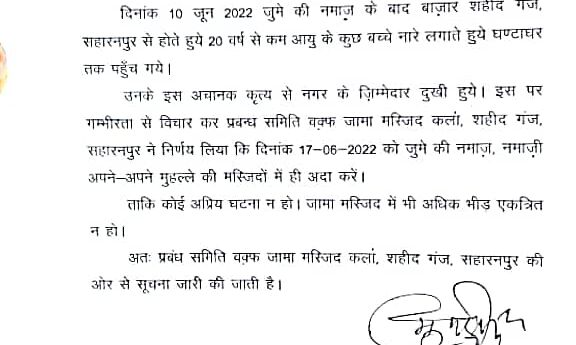 दिनांक 10 जून 2022 जुमे की नमाज़ के बाद बाज़ार शहीद गंज,
सहारनपुर से होते हुये 20 वर्ष से कम आयु के कुछ बच्चे नारे लगाते हुये घण्टाघर
तक पहुँच गये।
उनके इस अचानक कृत्य से नगर के ज़िम्मेदार दुखी हुये। इस पर
गम्भीरता से विचार कर प्रबन्ध समिति वक़्फ जामा मस्जिद कलां, शहीद गंज,
सहारनपुर ने निर्णय लिया कि दिनांक 17-06-2022 को जुमे की नमाज़, नमाज़ी
अपने-अपने मुहल्ले की मस्जिदों में ही अदा करें।
ताकि कोई अप्रिय घटना न हो। जामा मस्जिद में भी अधिक भीड़ एकत्रित
न हो।
अतः प्रबंध समिति वक़्फ जामा मस्जिद कलां, शहीद गंज, सहारनपुर की
ओर से सूचना जारी की जाती है।